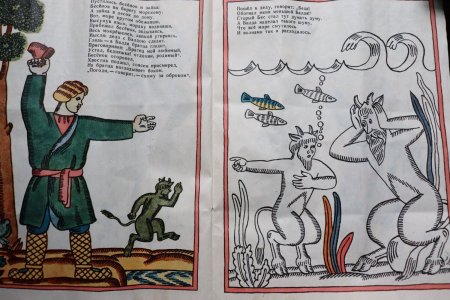 Пустились бесёнок и зайка:
Бесёнок по берегу морскому,
А зайка в лесок до дому.
Вот, море кругом обежавши,
Высунув язык, мордку поднявши,
Прибежал бесёнок, задыхаясь,
Весь мокрёшенек, лапкой утираясь,
Мысля: дело с Балдою сладит.
Глядь — а Балда братца гладит,
Приговаривая: «Братец мой любимый,
Устал, бедняжка! отдохни, родимый!»
Бесёнок оторопел,
Хвостик поджал, совсем присмирел,
На братца поглядывает боком.
«Погоди,— говорит,— схожу за оброком».
Пошёл к деду, говорит: «Беда!
Обогнал меня меньшой Балда!»
Старый Бес стал тут думать думу.
А Балда наделал такого шуму,
Что всё море смутилось
И волнами так и расходилось.